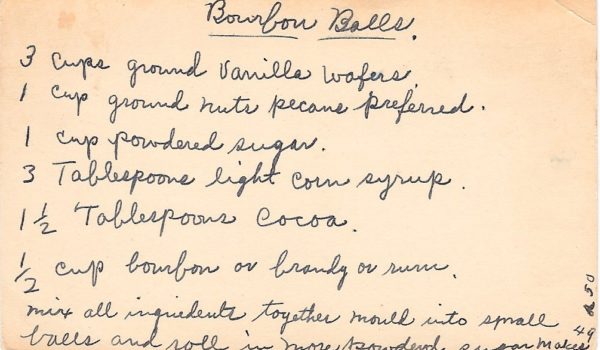 Bourbon Balls.
3 cups ground Vanilla Wafers
1 cup ground nuts pecans preferred.
1 cup powdered sugar.
3 Tablespoons light corn syrup.
1 1/2 Tablespoons Cocoa.
1/2 cup bourbon or brandy or rum.
mix all ingriedents together mould into small
balls and roll in more powderd sugar makes
49 50